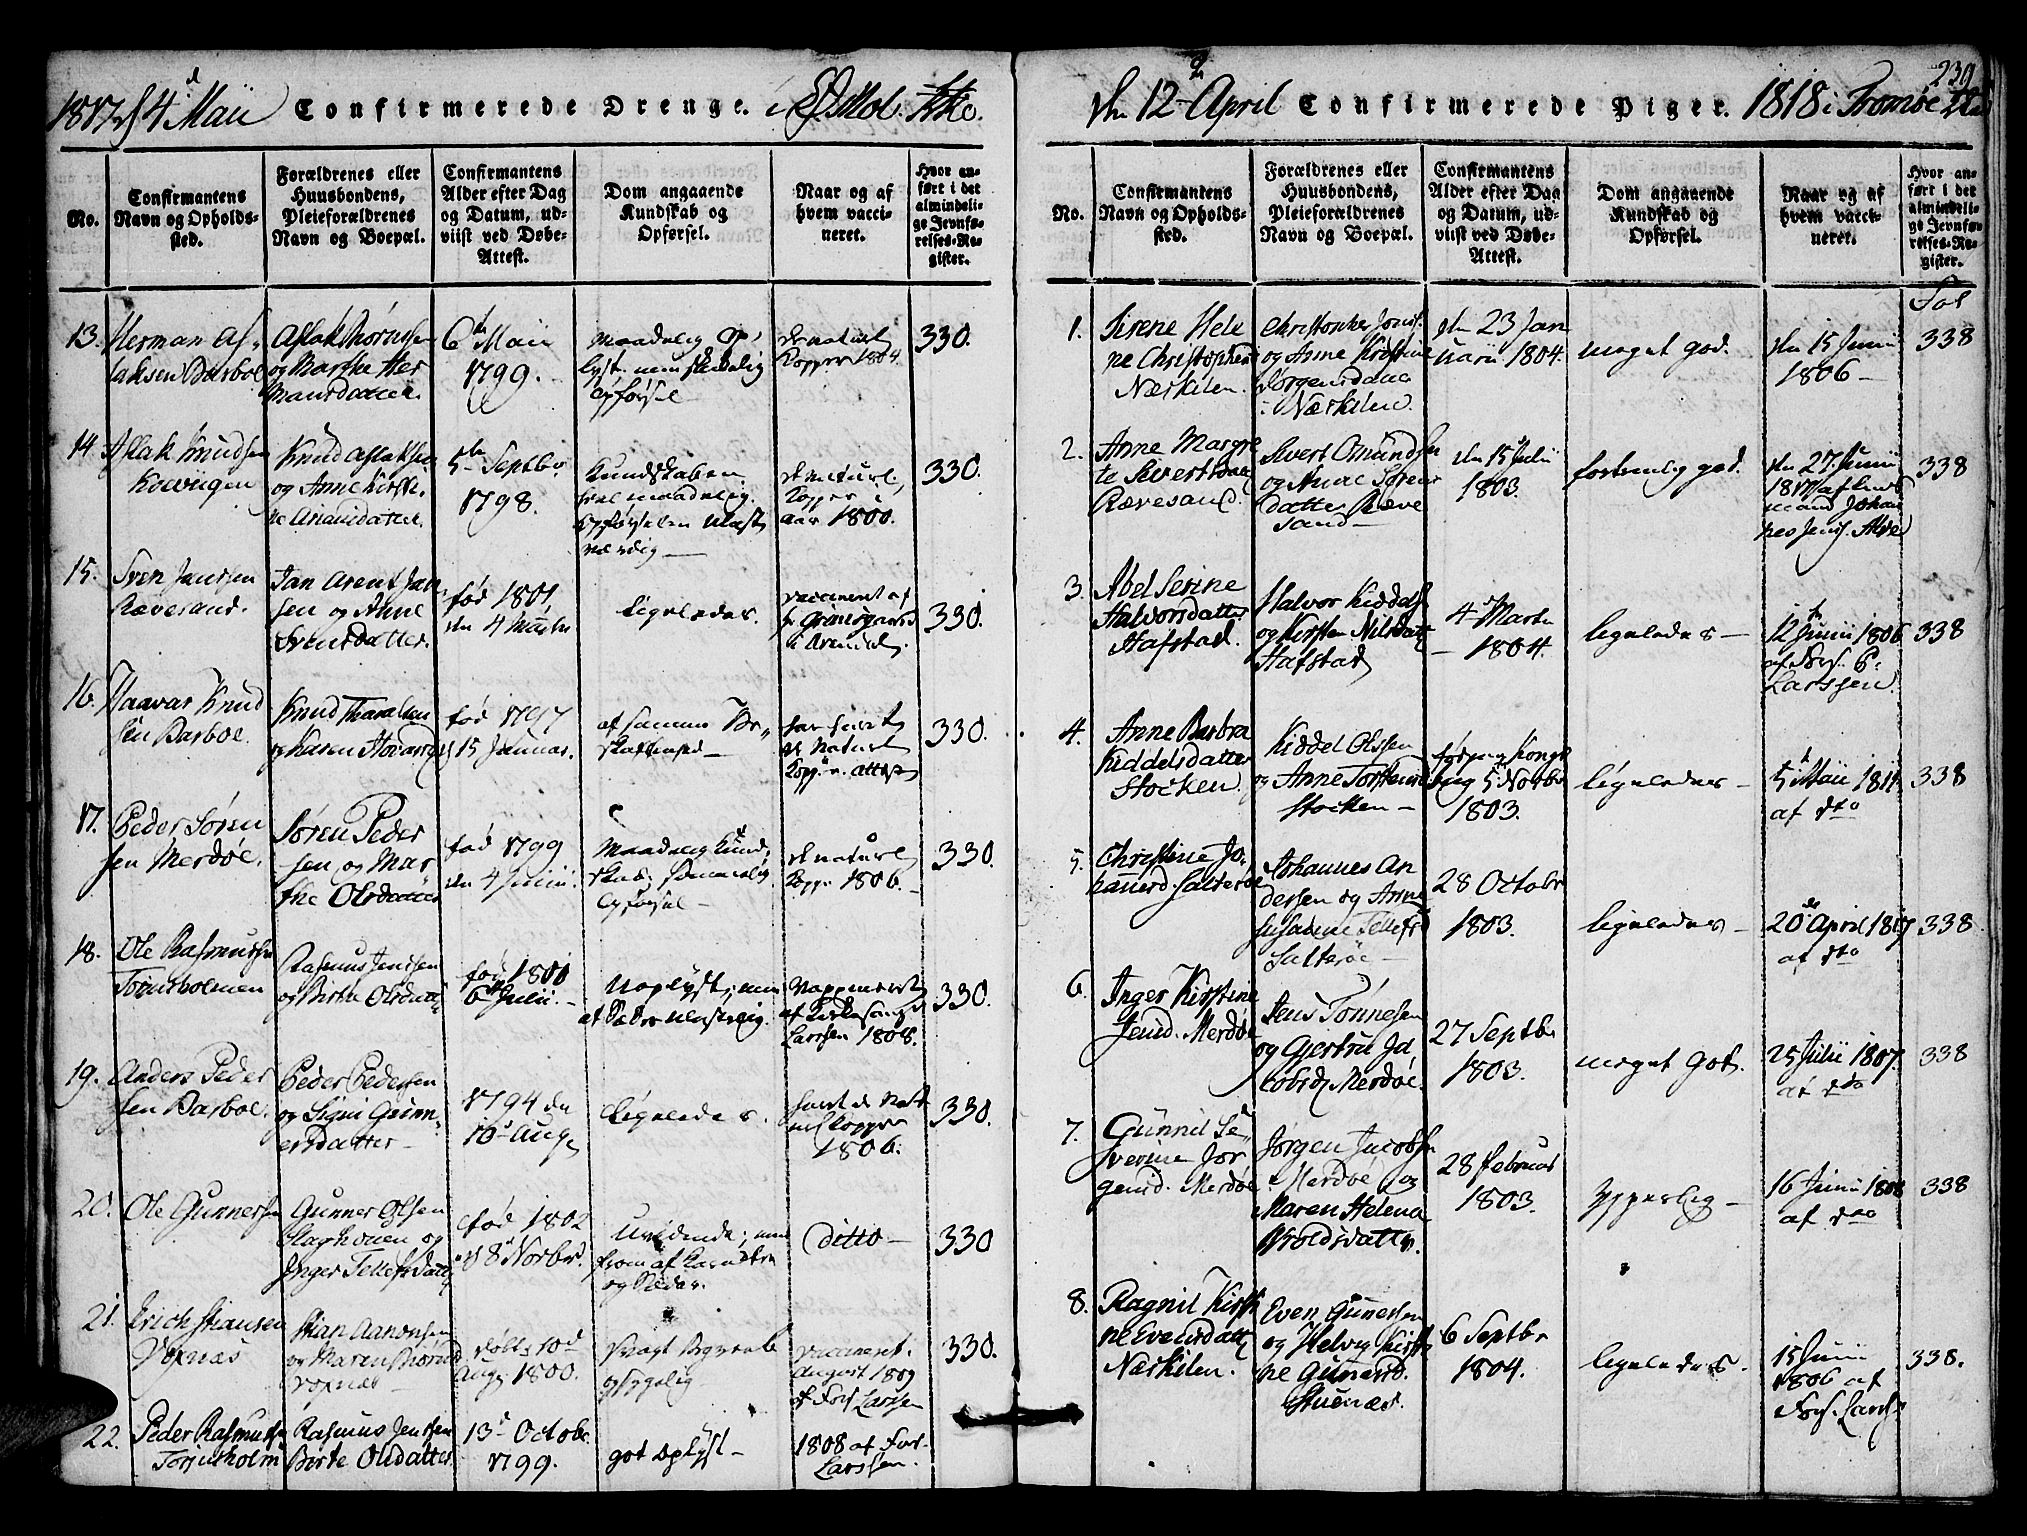 1817 d 4 Maii Confirmerede Drenge.
No.
Confirmantens
Navn og Opholds-
sted.
Forældrenes eller
Huusbondens,
Pleieforældrenes
Navn og Boepæl.
Confirmantens
Alder efter Dag
og Datum, ud-
viist ved Døbe-
Attest.
Dom angaaende
Kundskab og
Opførsel.
Naar og af
hvem vacci-
neret.
Hvor an-
ført i det
almindeli-
ge Jevnfø-
relses-Re-
gister.
13.
Herman As-
laksen Barboe
Aslak Thornsen
og Marthe Her
mansdatter.
6 Maii
1799.
maadelig op-
lyst. men skikkelig
opførsel
de naturl
Kopper 1804.
330.
14
Aslak Knudsen
Kovigen
Knud Aslaksen
og Anne Kirsti-
ne Arianidatter.
5 Septbr
1798.
Kundskaben
maadelig.
Opførselen ulast
værdig
de naturl
Kopper i
aar 1800.
330.
15.
Sven Jansen
Rævesand.
Jan Arent Jan
sen og Anne
Svensdatter.
fød 1801
den 4 Martii
Ligeledes.
vaccineret af
i Arendal.
330.
16.
Haavar Knud
sen Barboe.
Knud Tharaldsen
og Karen Hovarsd
fød 1797
d 15 Januar.
af samme Be-
skaffenhed
har havt
de naturl
Kopp. v. attest
330.
17.
Peder Søren
sen Merdøe.
Søren Peder
sen og Mar
the Olsdatter
fød 1799
den 4 Junii.
Maadelig Kund-
skab; sømmelig
Opførsel
de naturl
Kopper 1806.
330.
18.
Ole Rasmussen
Torjusholmen
Rasmus Jenssen
og Birte Olsdatt
fød 1801
6 Julii.
Uoplyst; men
af Sæder ulastelig.
Vaccineret
af Kirkesanger
Larssen 1808.
330.
19.
Anders Peder
sen Barboe.
Peder Pedersen
og Signi Gunn-
ersdatter
1794 den
10 Aug
Ligeledes.
havt de Natur
Kopper
1806.
330.
20.
Ole Gunnersen
Gunner Olsen
og
Inger Tellefsdatt
fød 1802
d 8 Novbr.
Uvidende; men
from af Karakter
og Sæder.
Ditto
330
21.
Erich Stiansen
Vopnæs
Stian Aanonsen
og Maren
Vopnæs
døbt 10
Aug 1800.
svagt Begreb
og sygelig
vaccineret.
August 1809
af Fors. Larssen
330.
22.
Peder Rasmuss
Torjusholm
Rasmus Jenssen
Birte Olsdatter
13 Octobr.
1799.
got oplyst
1808 af For.
Larssen.
239
den 12 April Confirmerede Piger. 1818 i Tromøe
No.
Confirmantens
Navn og Opholds-
sted.
Forældrenes eller
Huusbondens,
Pleieforældrenes
Navn og Boepæl.
Confirmantens
Alder efter Dag
og Datum, ud-
viist ved Døbe-
Attest.
Dom angaaende
Kundskab og
Opførsel.
Naar og af
hvem vacci-
neret.
Hvor an-
ført i det
almindeli-
ge Jevnfø-
relses-Re-
gister.
Fol
1.
Sirene Hele
ne Christophers
Næskilen.
Christopher Jons.
og Anne Kirstine
Jørgensdatter
i Næskilen.
den 23 Jan
uarii 1804.
meget god.
den 15 Junii
1806
338
2.
Anne Margre
te Sivertsdaa
Rævesand.
Sivert Omunds
og Anne Søren
datter Ræve
sand
den 15 Julii
1803.
fortrinlig god.
den 27 Junii
1817 af
mand Johan
nes Jens.
338
3.
Abel Serine
Halvorsdatter
Hafstad.
Halvor Kiddels
og Kirsten Nilsdatt
Hafstad
4 Martii
1804.
ligeledes
12 Junii 1806
af Fors. P.
Larssen.
338
4.
Anne Barbra
Kiddelsdatter
Stocken.
Kiddel Olssen
og Anne Torstensd
Stocken
født paa Kongs
5 Novbr
1803.
ligeledes
5 Maii 1811
af dto
338
5.
Christine Jo-
hannesd. Salterøe
Johannes An
dersen og Anne
Susanne Tellefs
Salterøe
28 Octobr
1803.
ligeledes
20 April 1807
af dto
338
6.
Inger Kirstine
Jensd. Merdøe
Jens Tønnesen
og Gjertru Ja
cobsd. Merdøe.
27 Septbr
1803.
meget got.
25 Julii 1807.
af dto
338
7.
Gunnil Se-
verine Jør
gensd. Merdøe
Jørgen Jacobsen
Merdøe og
Maren Helena
Woldsdatter.
28 Februar
1803.
ypperlig
16 Junii 1808
af dto
338
8.
Ragnil Kirsti
ne Evensdatt
Næskilen.
Even Gunersen
og Helvig Kirsti
ne Gunersd.
Stuenæs.
6 Septbr
1804.
ligeledes.
15 Junii
1806 af
Fors. Larss
338.